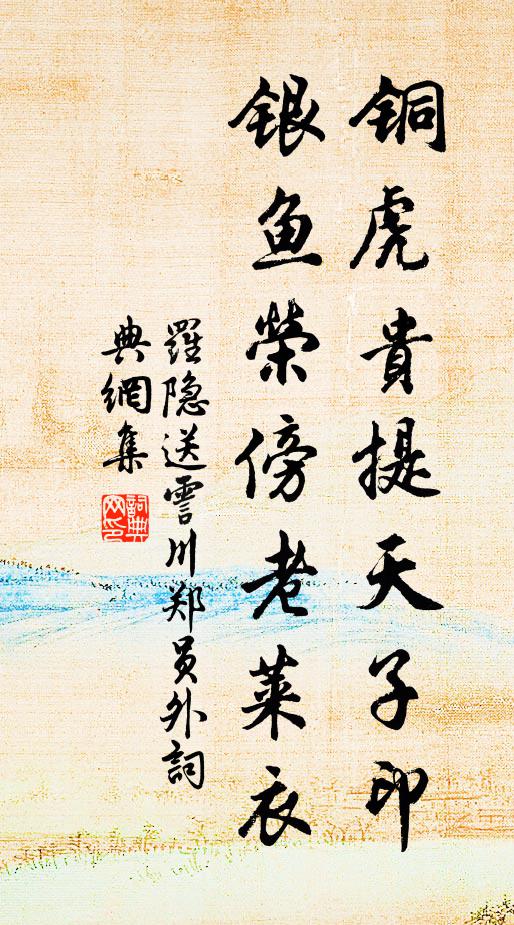 铜虎貴提天子印
银鱼榮傍老莱衣
羅隐送霅川郑员外詞
典網集
詞典
网印